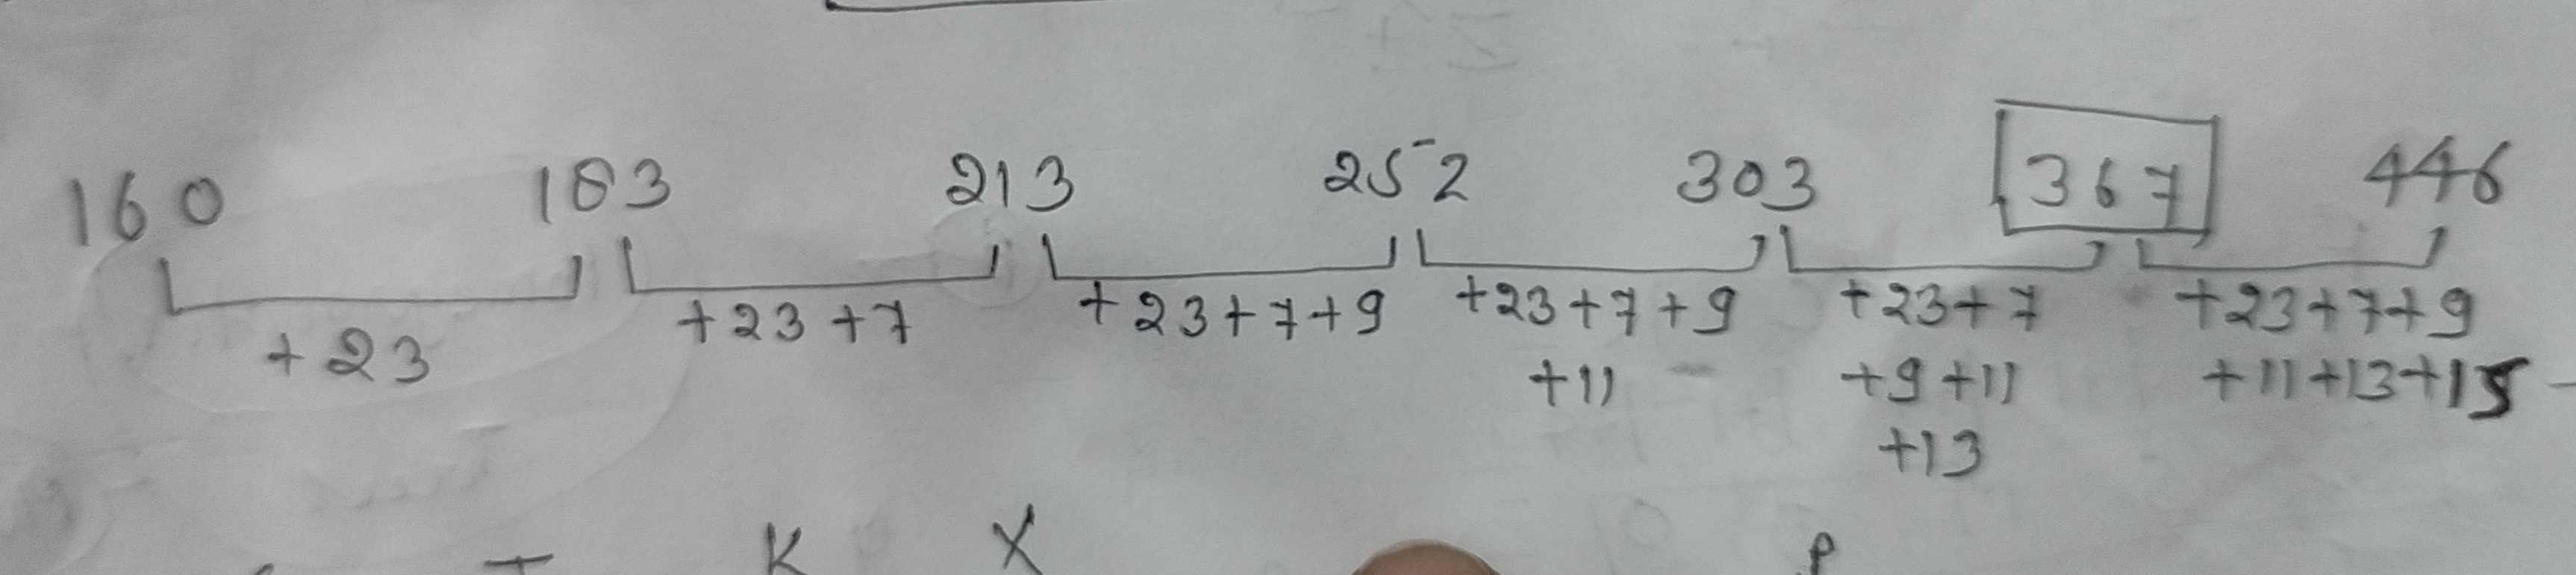 160 183 213 252 303 367 446
+23 +23+7 +23+7+9 +23+7+9 +23+7 +23+7+9
+11 +9+11 +11+13+15
+13
K X P